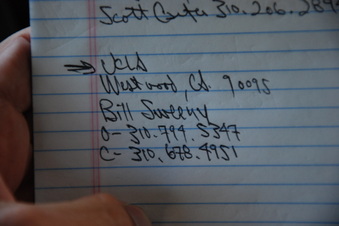 Scott Carter 310.206.289
→ UCLA
Westwood, CA 90095
Bill Sweeny
O- 310.794.5347
C- 310.678.4951